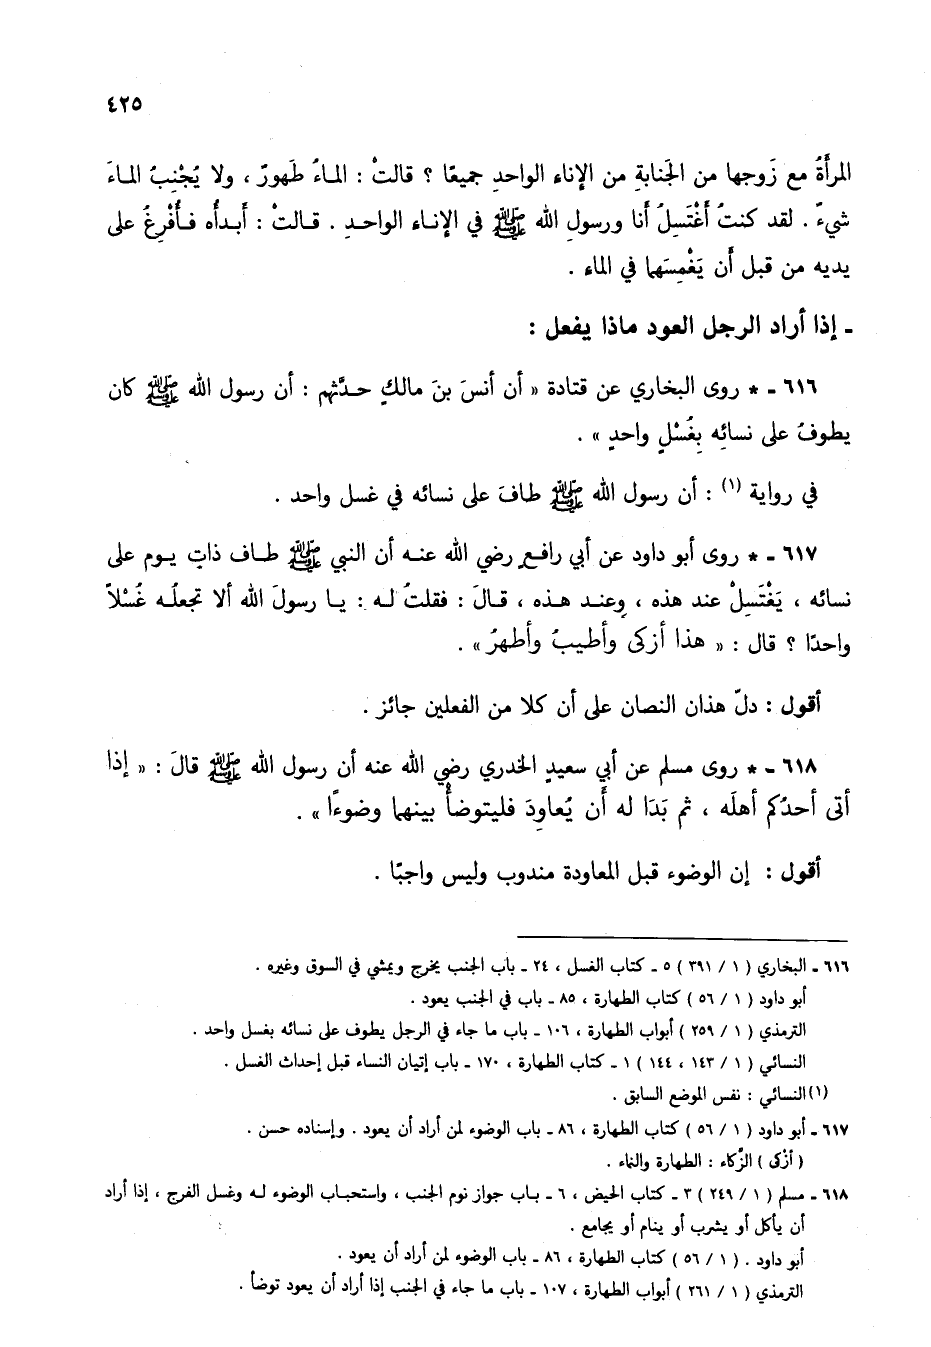 ٤٢٥
المرأَةُ مع زَوجها من الجَنابةِ من الإناء الواحدِ جميعًا ؟ قالتْ : الماءُ طَهورٌ ، ولا يُجْنِبُ الماءَ
شيءٌ . لقد كنتُ أَغْتَسِلُ أنا ورسولِ الله ﷺ في الإناء الواحدِ . قالتْ : أبدأُه فأُفْرِغُ على
يديه من قبل أن يَغْمِسَهما في الماء .
ـ إذا أراد الرجل العود ماذا يفعل :
٦١٦ ـ * روى البخاري عن قتادة « أن أنسَ بنَ مالكٍ حدَّثهم : أن رسول الله ﷺ كان
يطوفُ على نسائِه بِغُسْلٍ واحدٍ » .
في رواية (١) : أن رسول الله ﷺ طافَ على نسائه في غسل واحد .
٦١٧ ـ * روى أبو داود عن أبي رافع رضي الله عنه أن النبي ﷺ طاف ذاتِ يوم على
نسائه ، يَغْتَسِلْ عند هذه ، وعند هذه ، قالَ : فقلتُ له : يا رسولَ الله ألا تجعلُه غُسْلاً
واحدًا ؟ قال : « هذا أزكى وأطيبُ وأطهرُ » .
أقول : دلّ هذان النصان على أن كلا من الفعلين جائز .
٦١٨ ـ * روى مسلم عن أبي سعيدٍ الخدري رضي الله عنه أن رسول الله ﷺ قالَ : « إذا
أتى أحدُكم أهلَه ، ثم بَدَا له أن يُعاوِدَ فليتوضأْ بينهما وضوءًا » .
أقول : إن الوضوء قبل المعاودة مندوب وليس واجبًا .
٦١٦ ـ البخاري ( ١ / ٣٩١ ) ٥ ـ كتاب الغسل ، ٢٤ ـ باب الجنب يخرج ويمشي في السوق وغيره .
أبو داود ( ١ / ٥٦ ) كتاب الطهارة ، ٨٥ ـ باب في الجنب يعود .
الترمذي ( ١ / ٢٥٩ ) أبواب الطهارة ، ١٠٦ ـ باب ما جاء في الرجل يطوف على نسائه بغسل واحد .
النسائي ( ١ / ١٤٣ ، ١٤٤ ) ١ ـ كتاب الطهارة ، ١٧٠ ـ باب إتيان النساء قبل إحداث الغسل .
(١) النسائي : نفس الموضع السابق .
٦١٧ ـ أبو داود ( ١ / ٥٦ ) كتاب الطهارة ، ٨٦ ـ باب الوضوء لمن أراد أن يعود . وإسناده حسن .
( أزكى ) الزَّكاء : الطهارة والنماء .
٦١٨ ـ مسلم ( ١ / ٢٤٩ ) ٣ ـ كتاب الحيض ، ٦ ـ باب جواز نوم الجنب ، واستحباب الوضوء له وغسل الفرج ، إذا أراد
أن يأكل أو يشرب أو ينام أو يجامع .
أبو داود . ( ١ / ٥٦ ) كتاب الطهارة ، ٨٦ ـ باب الوضوء لمن أراد أن يعود .
الترمذي ( ١ / ٢٦١ ) أبواب الطهارة ، ١٠٧ ـ باب ما جاء في الجنب إذا أراد أن يعود توضأ .